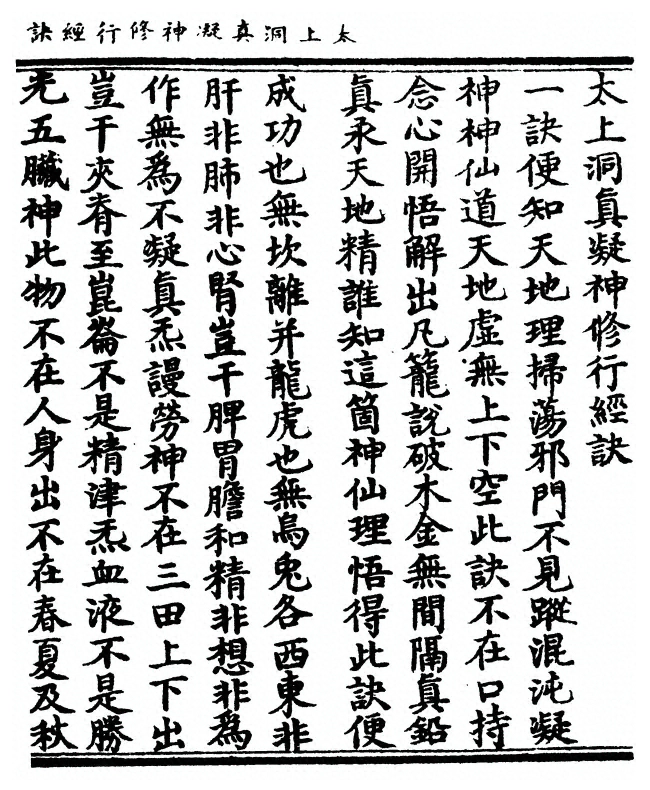 太上洞真凝神修行經訣
太上洞眞凝神修行經訣
一訣便知天地理掃蕩邪門不見蹤混沌凝
神神仙道天地虛無上下空此訣不在口持
念心開悟解出凡籠說破木金無間隔眞鉛
眞汞天地精誰知這箇神仙理悟得此訣便
成功也無坎離并龍虎也無烏兎各西東非
肝非肺非心腎豈干脾胃膽和精非想非爲
作無爲不凝眞炁謾勞神不在三田上下出
豈干夾脊至崑崙不是精津炁血液不是勝
光五臟神此物不在人身出不在春夏及秋